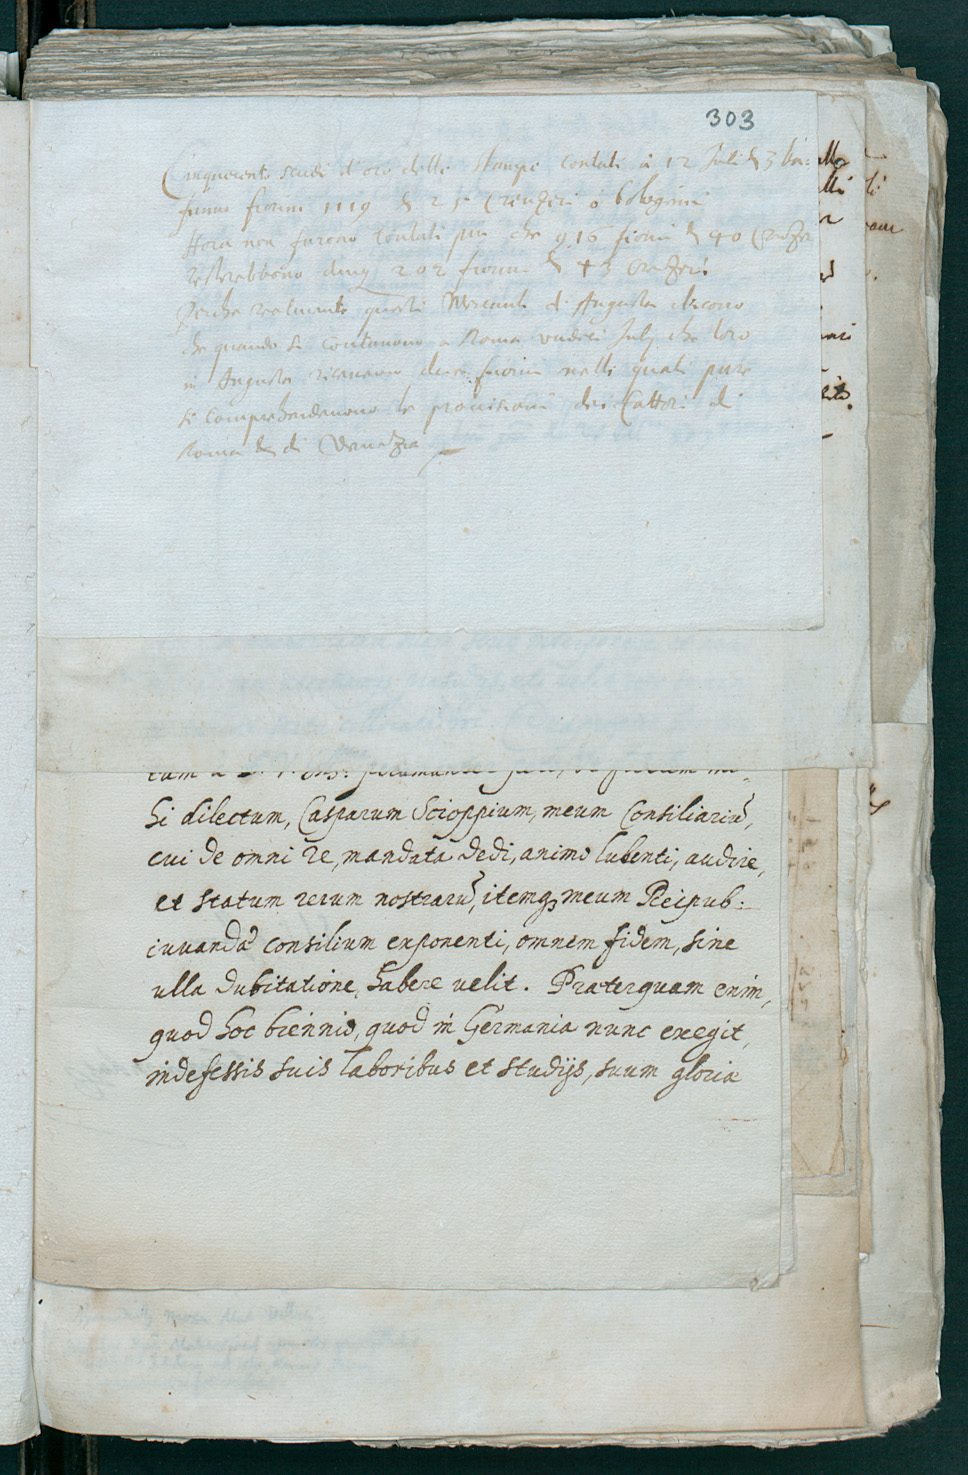 303
Cinquecento scudi d'oro delle stampe contati à 12 Julÿ
fanno fiorini 1119 & 25 Creuzeri ò bologini
Hora non furono contati piu che 916 fiorini & 40 Creuzer
resterebbono dunq 202 fiorini & 45 Creuzeri
Perche realmente questi Mercanti di Augusta dicono
che quando si contavano a Roma undeci Julÿ che loro
in Augusta ricevevano fiorini nelli quali pure
si comprehendevono le provisioni dei Fattori di
Roma & di Venezia
hi dilectum, Casparum Scioppium, meum Consiliariũ,
cui de omni re, mandata dedi, animo lubenti, audire,
et statum rerum nostrarũ, itemq meum Reipub:
iuvandæ consilium exponenti, omnem fidem, sine
ulla dubitatione, habere velit. Præterquam enim,
quod hoc biennio, quod in Germania nunc exegit,
indefessis suis laboribus et studijs, suum gloriæ